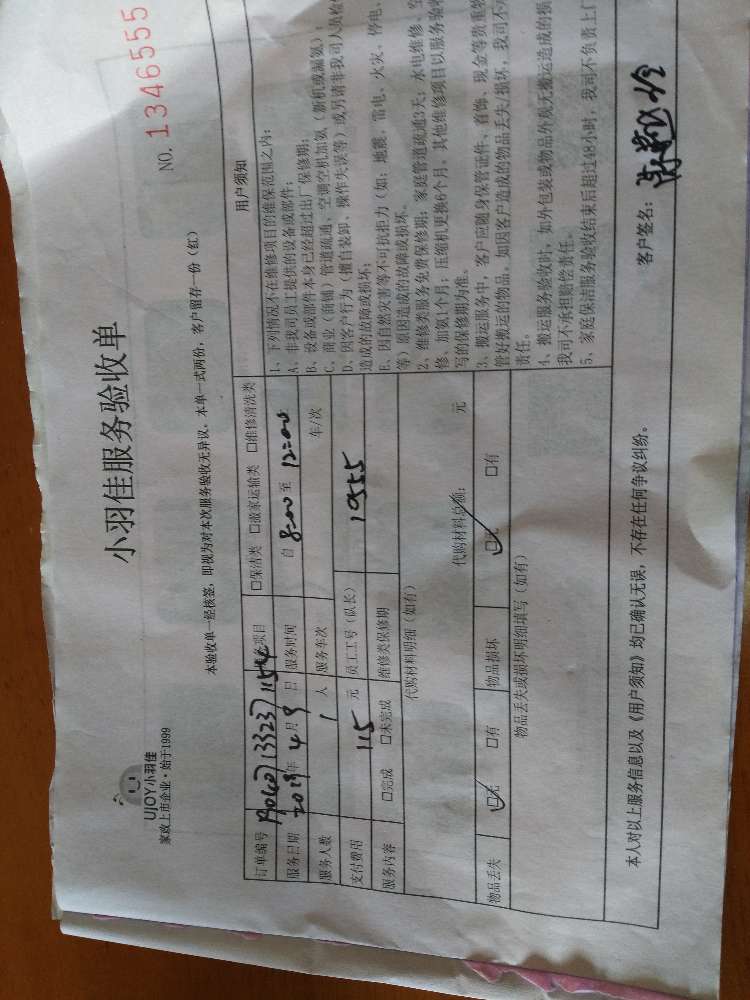 UJOY小羽佳
家政上市企业·始于1999
小羽佳服务验收单
NO. 1346555
本验收单一经核签，即视为对本次服务验收无异议。本单一式两份，客户留存一份（红）
订单编号
项目 □保洁类 □搬家运输类 □维修清洗类
服务日期 2019年 4月 9日 服务时间 自 8:00 至 12:00
服务人数 1 人 服务车次 车/次
支付费用 115 元 员工工号（队长） 19555
服务内容 □完成 □未完成 维修类保修期
代购材料明细（如有）
代购材料总额： 元
物品丢失 □无 □有 物品损坏 □无 □有
物品丢失或损坏明细填写（如有）
用户须知
1、下列情况不在维修项目的维保范围之内：
A、非我司员工提供的设备或部件；
B、设备或部件本身已经超过出厂保修期；
C、商业（商铺）管道疏通、空调空机加氨（新机或漏氨）；
D、因客户行为（擅自装卸、操作失误等）或另请非我司人员检修
造成的故障或损坏；
E、因自然灾害等不可抗拒力（如：地震、雷电、火灾、停电、
等）原因造成的故障或损坏。
2、维修类服务免费保修期：家庭管道疏通3天；水电维修、空
修、加氨1个月；压缩机更换6个月，其他维修项目以服务验收
写的保修期为准。
3、搬运服务中，客户应随身保管证件、首饰、现金等贵重物
管好搬运的物品，如因客户造成的物品丢失/损坏，我司不承
责任。
4、搬运服务验收时，如外包装或物品外观无搬运造成的损
我司不承担赔偿责任。
5、家庭保洁服务验收结束后超过48小时，我司不负责上门
本人对以上服务信息以及《用户须知》均已确认无误，不存在任何争议纠纷。
客户签名：